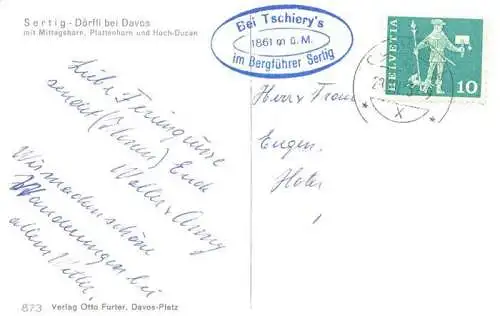 Sertig - Dörfli bei Davos
mit Mittagshorn, Plattenhorn und Hoch-Ducan
Bei Tschiery's
1861 m ü. M.
im Bergführer Sertig
HELVETIA
10
x
Liebe Feriengrüsse
sendet Euch
Walter + Anny
Wir machen schöne
Wanderungen bei
allem Wetter.
Herr + Frau
Eugen
873 Verlag Otto Furter, Davos-Platz